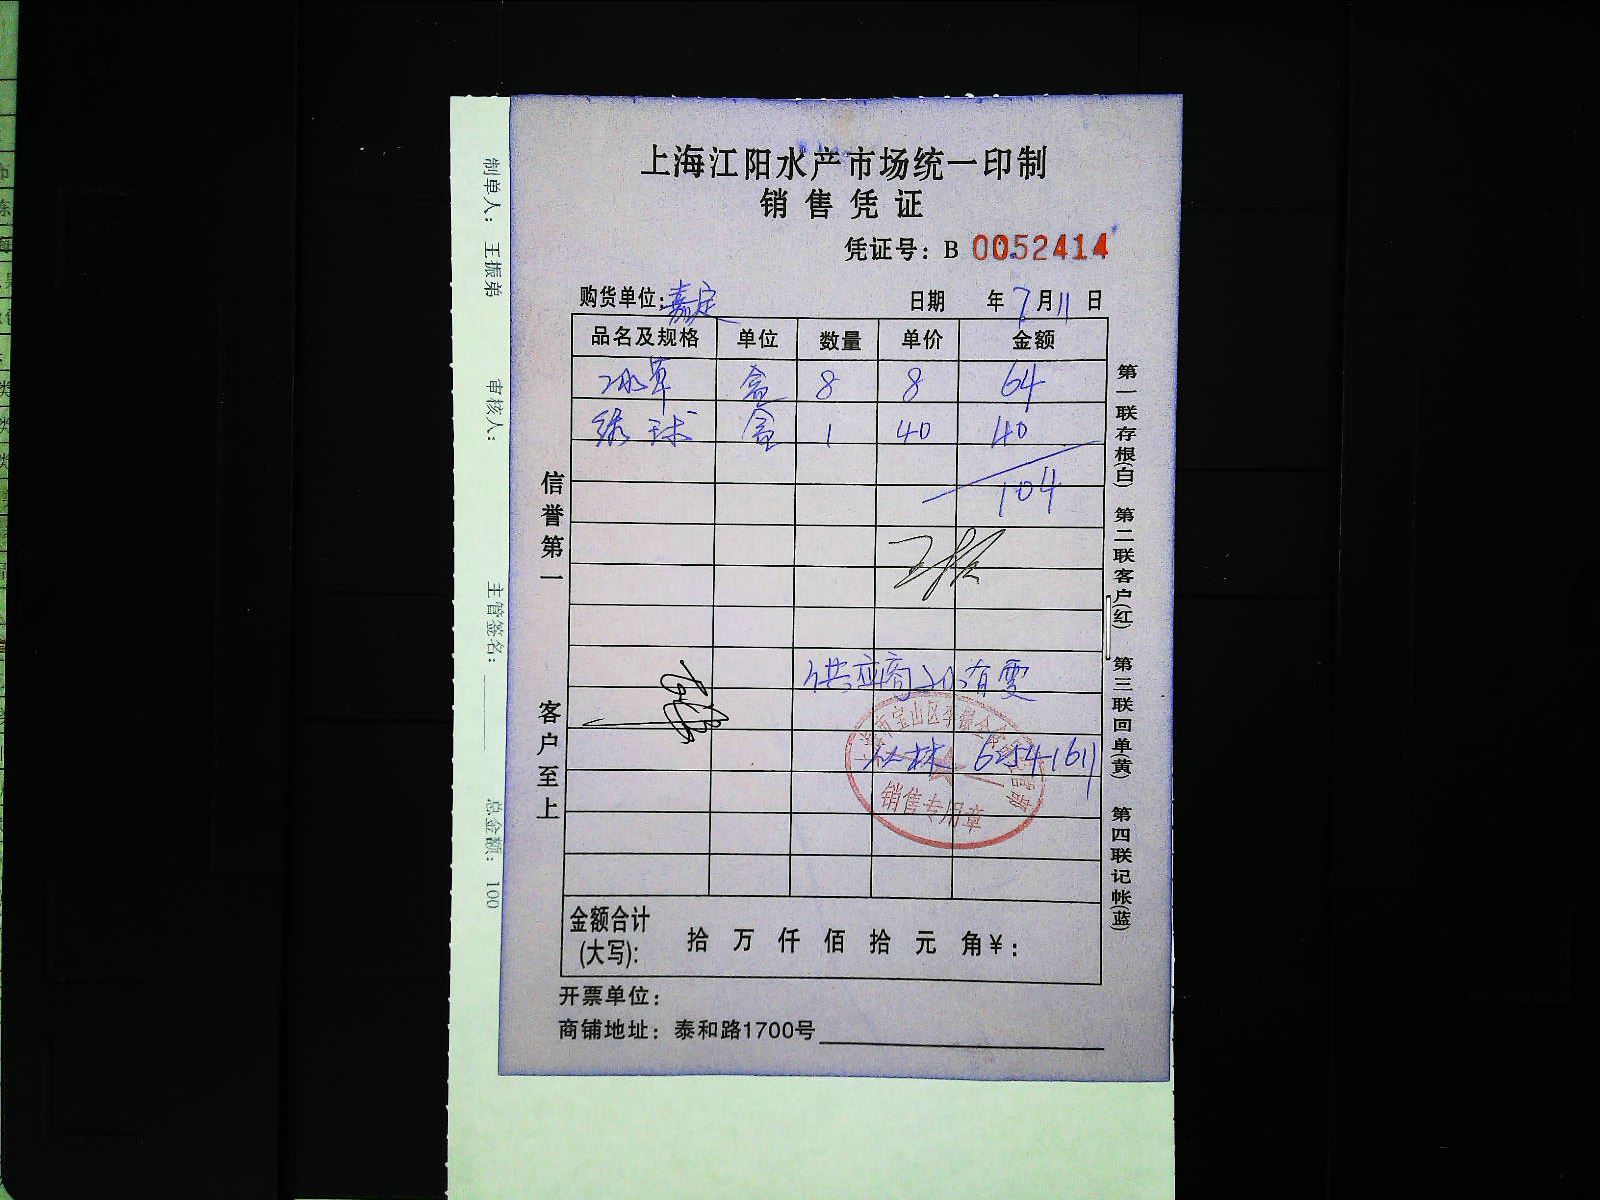 上海江阳水产市场统一印制
销售凭证
凭证号：B 0052414
购货单位：嘉定 日期 年 7月11日
品名及规格 单位 数量 单价 金额
冰草 盒 8 8 64
绣球 盒 1 40 40
104
王振
供应商
6254-1611
销售专用章
金额合计
(大写)： 拾 万 仟 佰 拾 元 角 ¥：
开票单位：
商铺地址：泰和路1700号
信誉第一
客户至上
第一联存根(白) 第二联客户(红) 第三联回单(黄) 第四联记帐(蓝)
制单人：王振弟 审核人： 主管签名： 总金额：100